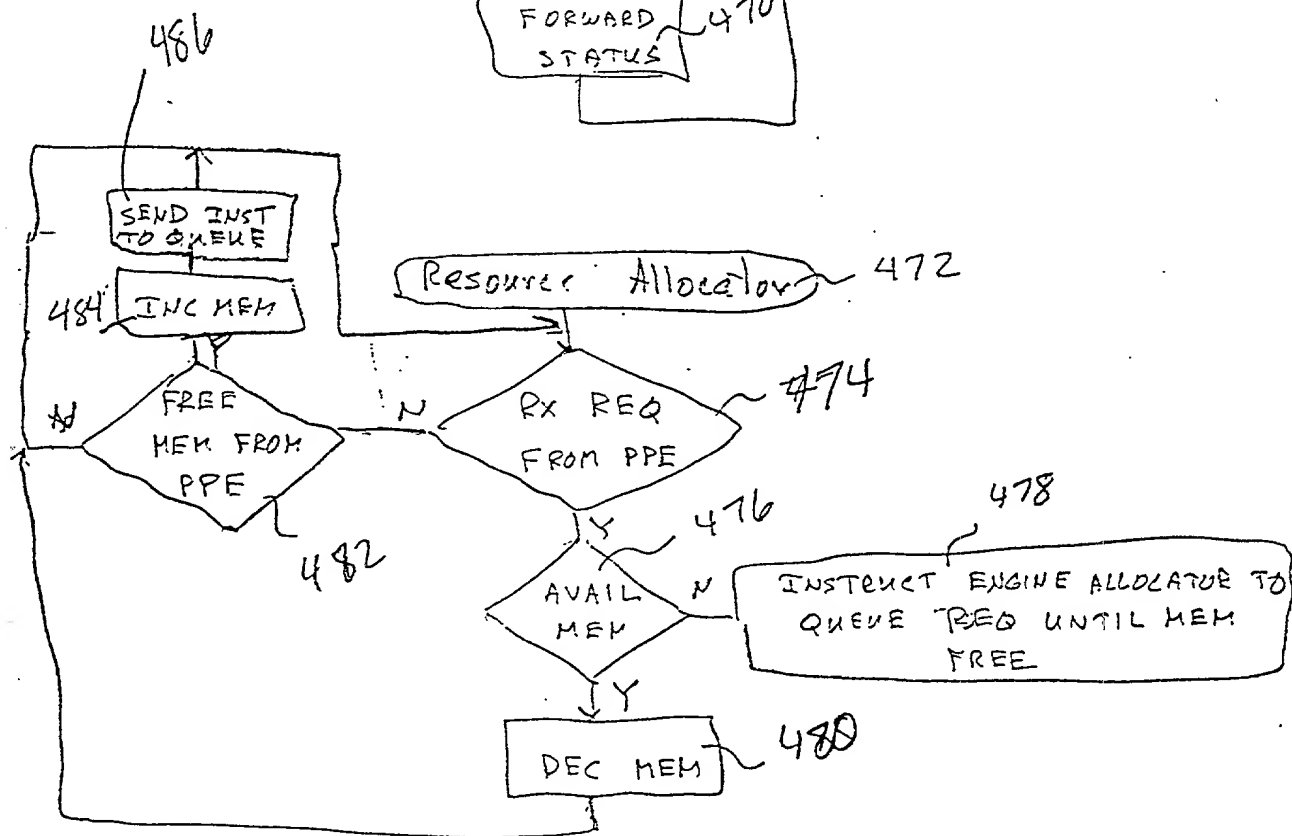 FORWARD
STATUS
470
486
SEND INST
TO QUEUE
484
INC MEM
Y
Resource Allocator
472
FREE
MEM FROM
PPE
N
N
482
RX REQ
FROM PPE
474
Y
476
AVAIL
MEM
N
478
INSTRUCT ENGINE ALLOCATOR TO
QUEUE REQ UNTIL MEM
FREE
Y
DEC MEM
480